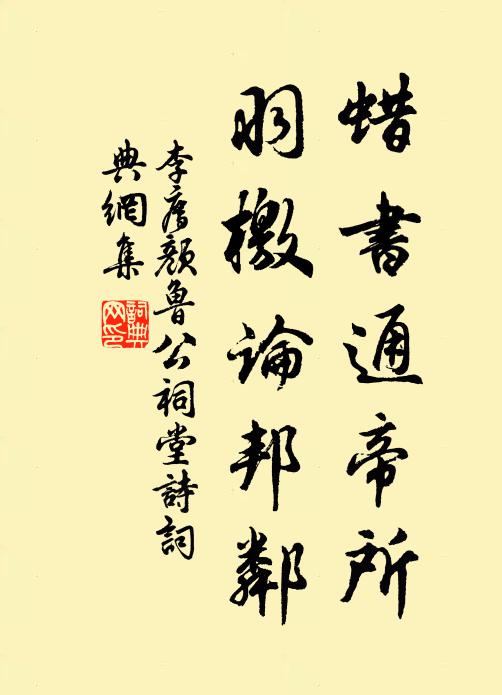 蜡書通帝所
羽檄論邦鄰
李廌顏魯公祠堂詩詞
典網集
詞典
网印